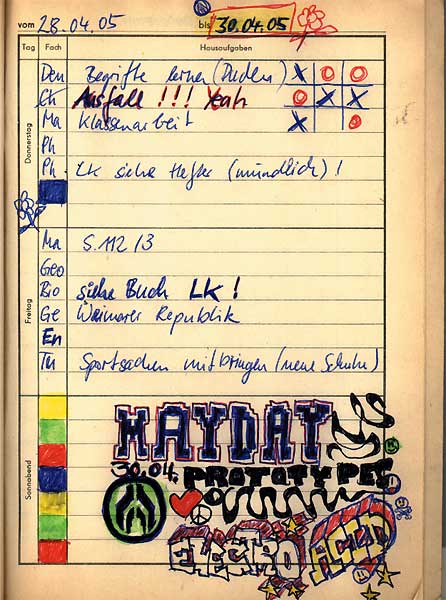 vom 28.04.05 bis 30.04.05
Tag Fach Hausaufgaben
Donnerstag
Deu Begriffe lernen (Duden) X O O
Ch Ausfall !!! Yeah O X X
Ma Klassenarbeit X O
Ph
Ph. LK siehe Hefter (mündlich) !
Freitag
Ma S. 112 / 3
Geo
Bio siehe Buch LK !
Ge Weimarer Republik
En
Tu Sportsachen mitbringen (neue Schuhe)
Sonnabend
MAYDAY
30.04. PROTOTYPES
ELECTRO ACID